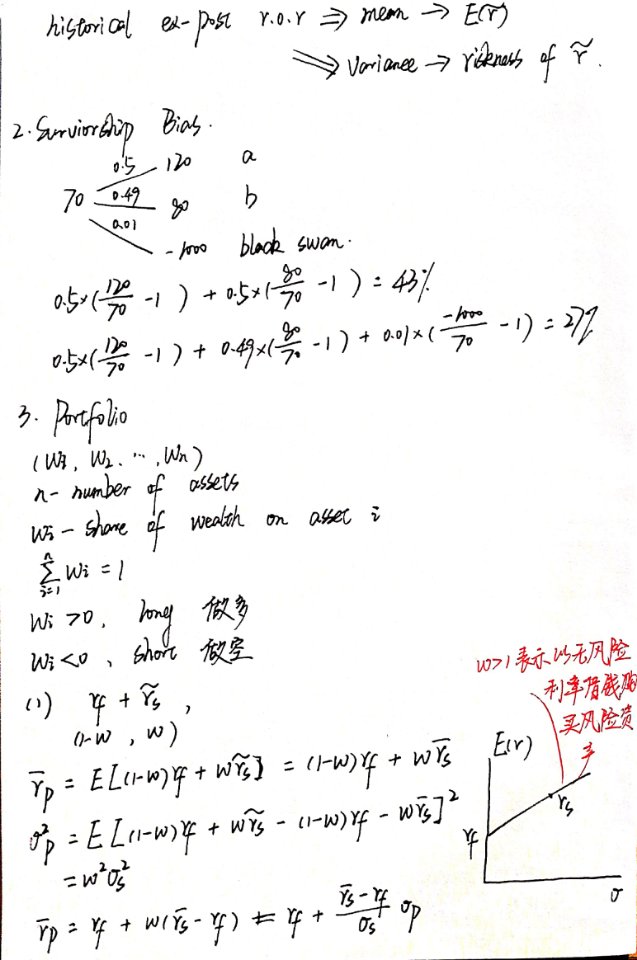 historical ex-post r.o.r ⇒ mean → E(r̃)
⇒ Variance → riskness of r̃.
2. Surviorship Bias.
0.5 120 a
70 0.49 80 b
0.01 -1000 black swan.
0.5×(120/70 -1) + 0.5×(80/70 -1) = 43%
0.5×(120/70 -1) + 0.49×(80/70 -1) + 0.01×(-1000/70 -1) = 27%
3. Portfolio
(W1, W2, ..., Wn)
n- number of assets
Wi - share of wealth on asset i
∑_{i=1}^{n} Wi = 1
Wi >0, long 做多
Wi <0, short 做空
w>1表示以无风险
利率借钱购
买风险资
产
(1) rf + r̃s,
(1-w, w)
r̄p = E[(1-w)rf + wr̃s] = (1-w)rf + wr̄s
σ²p = E[(1-w)rf + wr̃s - (1-w)rf - wr̄s]²
= w²σs²
r̄p = rf + w(r̄s - rf) = rf + (r̄s - rf)/σs σp
E(r)
rf
rs
σ